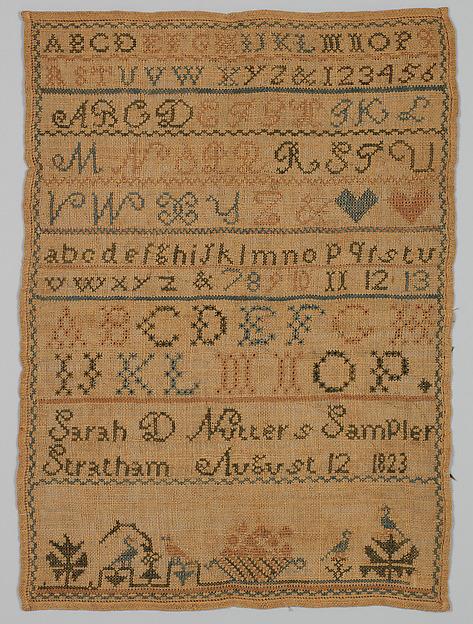 ABCD EFGH IJKL MNOP Q
RSTUVW XYZ & 123456
ABCD EFGH IKL
M NOPQ RSTU
VW XYZ &
abcdefghijklmnopqrstu
vwxyz & 789 10 11 12 13
ABCDEFGH
IJKLMNOP.
Sarah D Nutters Sampler
Stratham August 12 1823